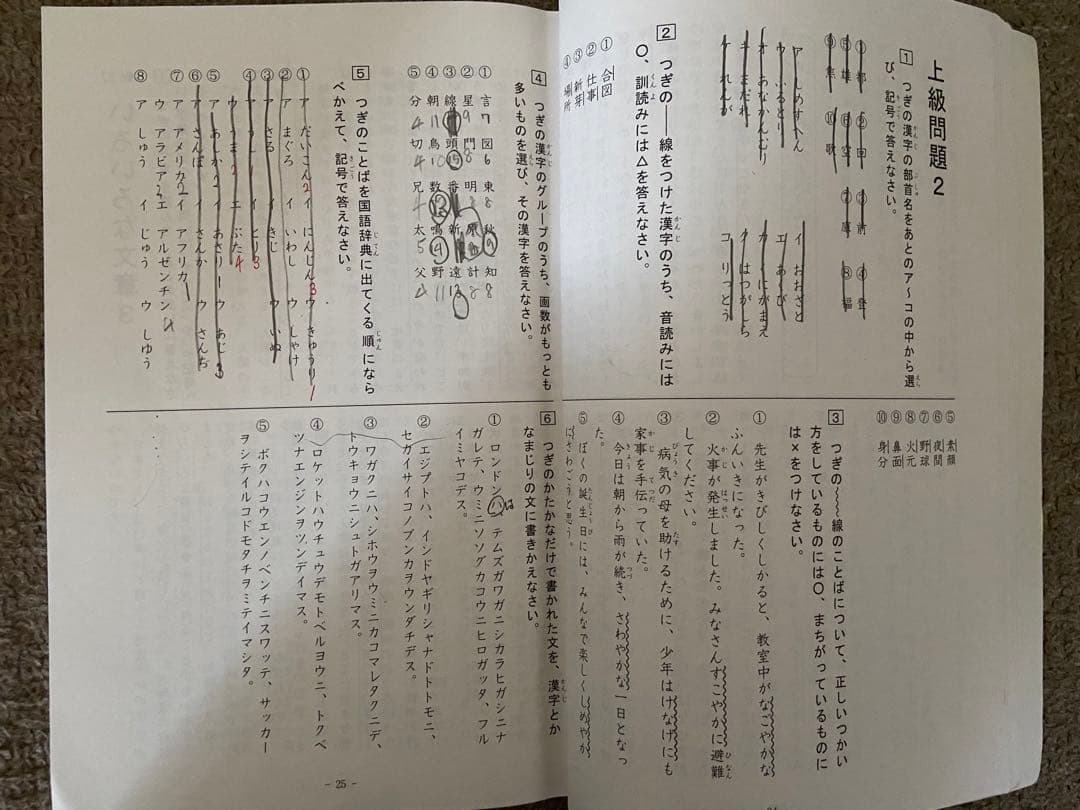 上級問題2
1 つぎの漢字の部首名をあとのア〜コの中から選
び、記号で答えなさい。
① 都 ② 回 ③ 前 ④ 登
⑤ 雄 ⑥ 空 ⑦ ⑧ 福
⑨ 焦 ⑩ 歌
ア しめすへん イ おおざと
ウ ふるとり エ あくび
オ あなかんむり カ くにがまえ
キ まだれ ク はつがしら
ケ れんが コ りっとう
2 つぎの――線をつけた漢字のうち、音読みには
○、訓読みには△を答えなさい。
① 合図
② 仕事
③ 新芽
④ 場所
⑤ 素顔
⑥ 夜間
⑦ 野球
⑧ 火元
⑨ 鼻面
⑩ 身分
3 つぎの〜〜線のことばについて、正しいつかい
方をしているものには○、まちがっているものに
は×をつけなさい。
① 先生がきびしくしかると、教室中がなごやかな
ふんいきになった。
② 火事が発生しました。みなさんすこやかに避難
してください。
③ 病気の母を助けるために、少年はけなげにも
家事を手伝っていた。
④ 今日は朝から雨が続き、さわやかな一日となっ
た。
⑤ ぼくの誕生日には、みんなで楽しくしめやか
にさわごうと思う。
4 つぎの漢字のグループのうち、画数がもっとも
多いものを選び、その漢字を答えなさい。
① 言7 図6 東8 秋9 知8
② 星9 門8 明8 原 計
③ 線 頭 番 新 遠13
④ 朝11 鳥 数13 鳴 野11
⑤ 分4 切4 兄 太 父4
5 つぎのことばを国語辞典に出てくる順になら
べかえて、記号で答えなさい。
① ア だいこん2 イ にんじん3 ウ きゅうり1
② ア まぐろ イ いわし ウ しゃけ
③ ア さる イ きじ ウ いぬ
④ ア うし1 イ とり3
ウ うま2 エ ぶた4
⑤ ア あしか2 イ あさり1 ウ あじ3
⑥ ア さんぽ イ さんか ウ さんぢ
⑦ ア アメリカ2 イ アフリカ1
ウ アラビア3 エ アルゼンチン4
⑧ ア しゅう イ じゅう ウ しゆう
6 つぎのかたかなだけで書かれた文を、漢字とか
なまじりの文に書きかえなさい。
① ロンドンハは テムズガワガニシカラヒガシニナ
ガレテ、ウミニソソグカコウニヒロガッタ、フル
イミヤコデス。
② エジプトハ、インドヤギリシャナドトトモニ、
セカイサイコノブンカヲウンダチデス。
③ ワガクニハ、シホウヲウミニカコマレタクニデ、
トウキョウニシュトガアリマス。
④ ロケットハウチュウデモトベルヨウニ、トクベ
ツナエンジンヲツンデイマス。
⑤ ボクハコウエンノベンチニスワッテ、サッカー
ヲシテイルコドモタチヲミテイマシタ。
- 25 -